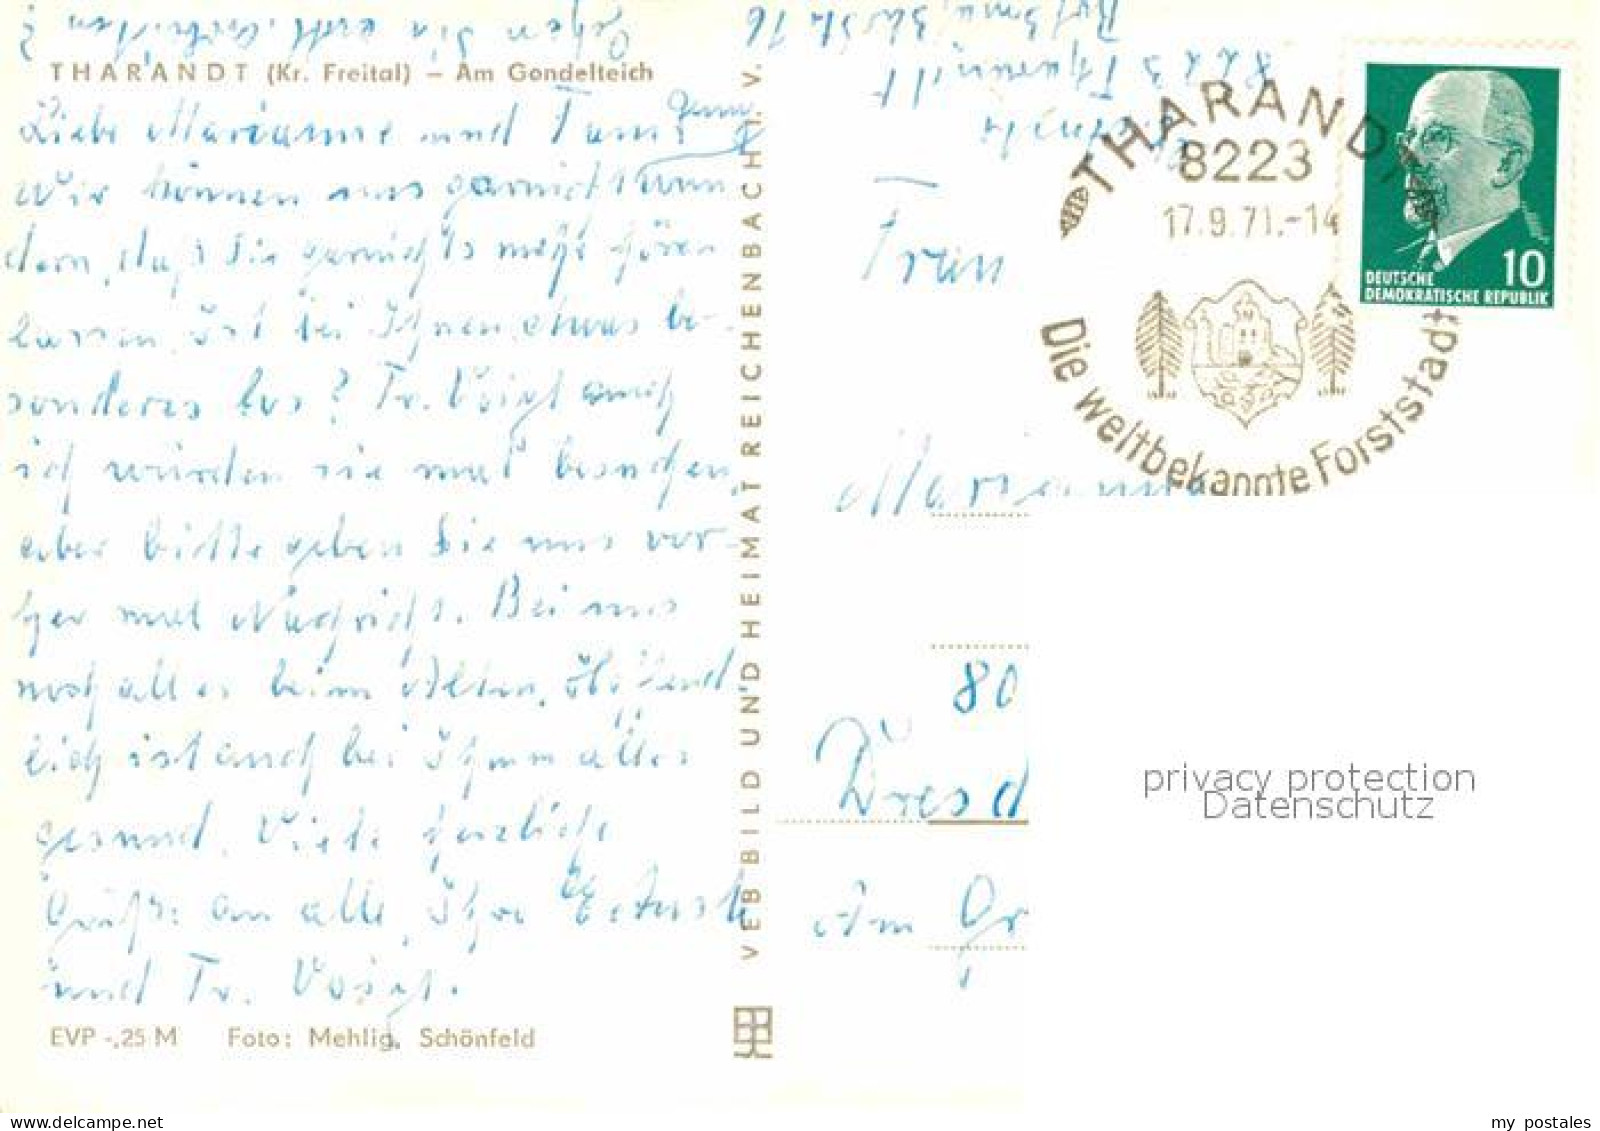 Gehen Sie
THARANDT (Kr. Freital) – Am Gondelteich
Liebe Marianne und
Wir können uns garnicht wun
dern, daß Sie garnichts mehr hören
lassen, ist bei Ihnen etwas be-
sonderes los? Fr. Voigt auch
ich würden sie mal besuchen,
aber bitte geben Sie uns vor-
her mal Nachricht. Bei uns
noch alles beim Alten,
lich ist auch bei Ihnen alles
gesund. Viele herzliche
Grüße an alle, Ihre
und Fr. Voigt.
EVP -,25 M Foto: Mehlig, Schönfeld
VEB BILD UND HEIMAT REICHENBACH I. V.
8223 Tharandt
THARANDT
8223
17.9.71.-14
Die weltbekannte Forststadt
DEUTSCHE
DEMOKRATISCHE REPUBLIK
10
Frau
Marianne
80
Dresd
Am Gr
privacy protection
Datenschutz
my postales